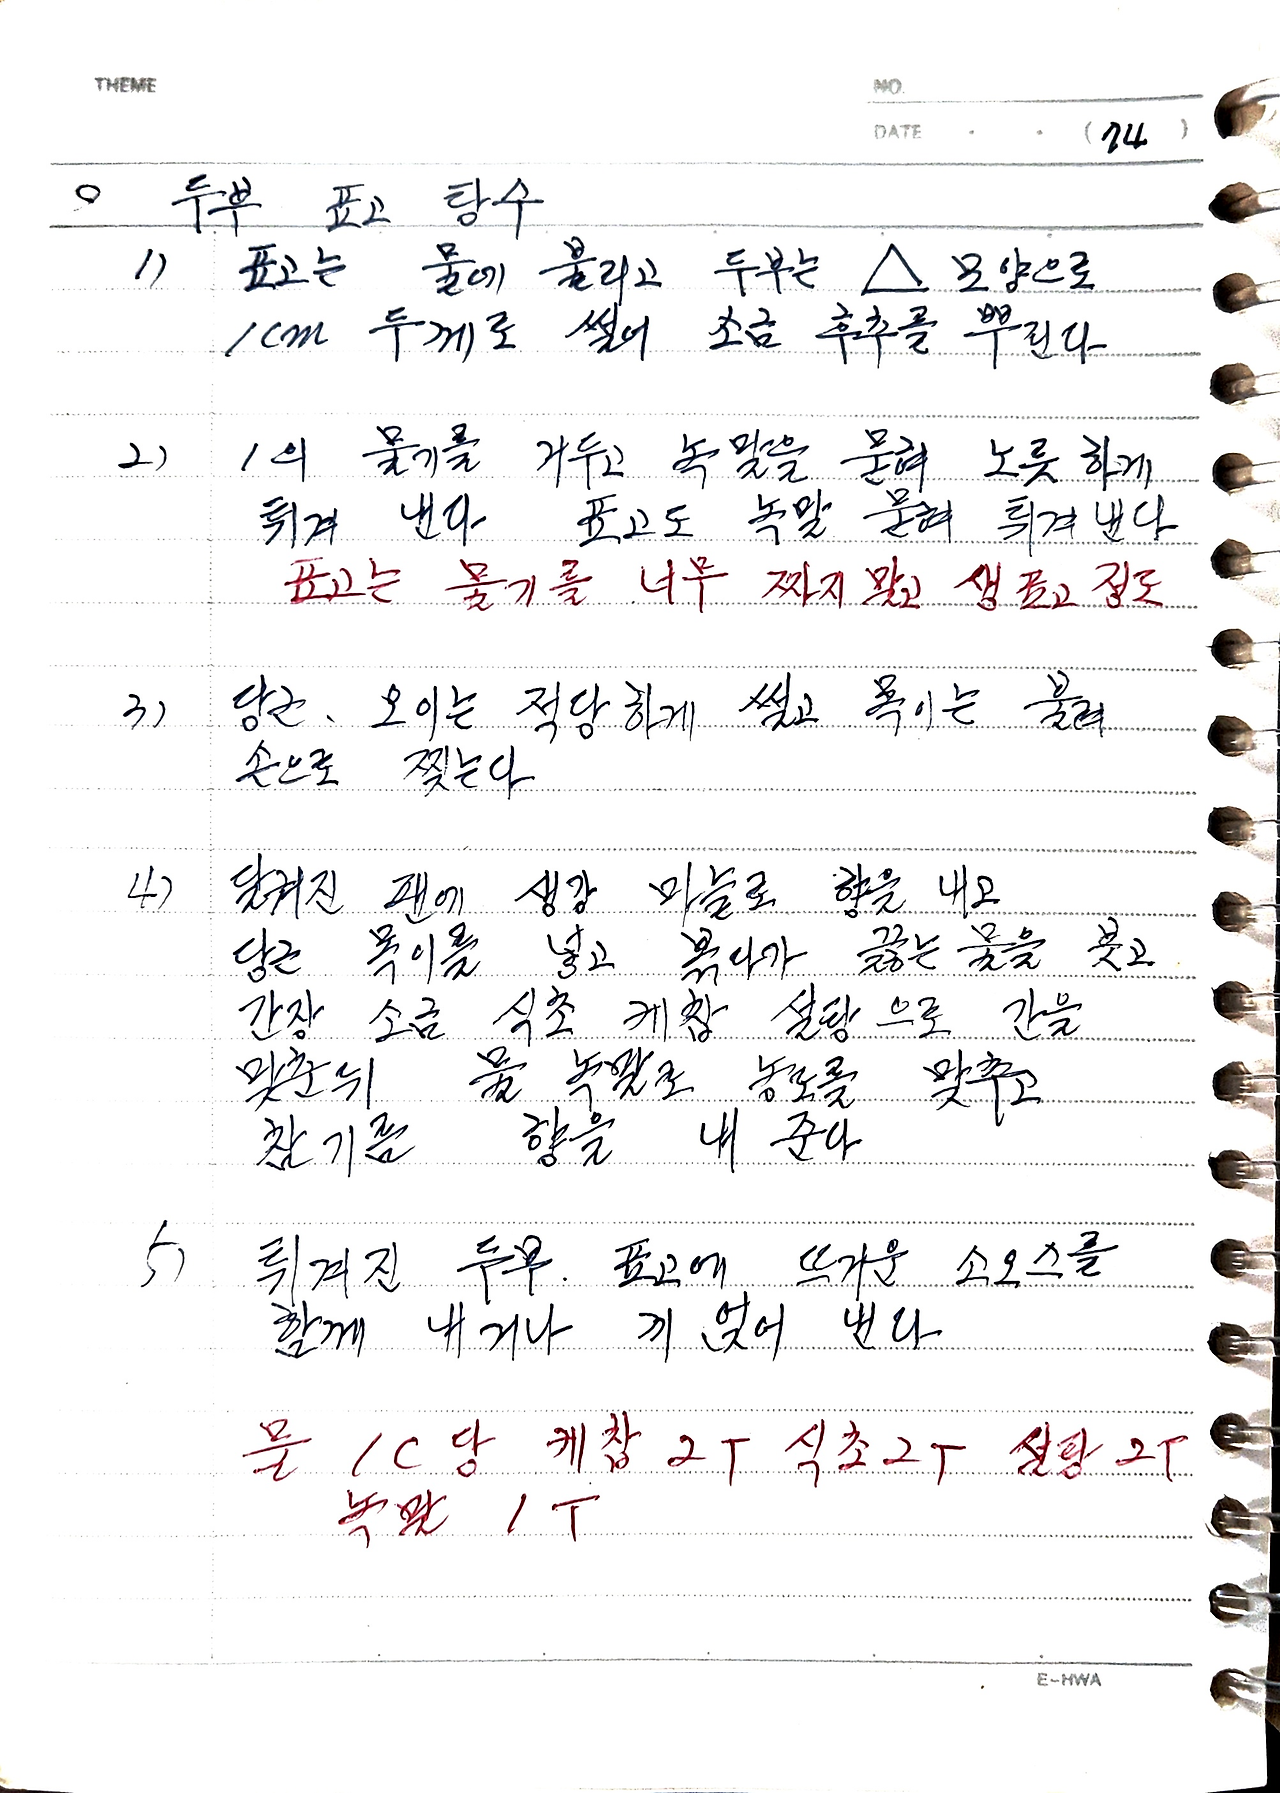 THEME
NO.
DATE . . ( 74 )
○ 두부 표고 탕수
1) 표고는 물에 불리고 두부는 △ 모양으로
1cm 두께로 썰어 소금 후추를 뿌린다
2) 1의 물기를 거두고 녹말을 묻혀 노릇하게
튀겨 낸다 표고도 녹말 묻혀 튀겨낸다
표고는 물기를 너무 짜지말고 생표고 정도
3) 당근、오이는 적당하게 썰고 목이는 불려
손으로 찢는다
4) 달켜진 팬에 생강 마늘로 향을 내고
당근 목이를 넣고 볶다가 끓는물을 붓고
간장 소금 식초 케찹 설탕으로 간을
맞춘뒤 물 녹말로 농도를 맞추고
참기름 향을 내 준다
5) 튀겨진 두부. 표고에 뜨거운 소오스를
함께 내거나 끼얹어 낸다
물 1C당 케찹 2T 식초2T 설탕 2T
녹말 1T
E-HWA